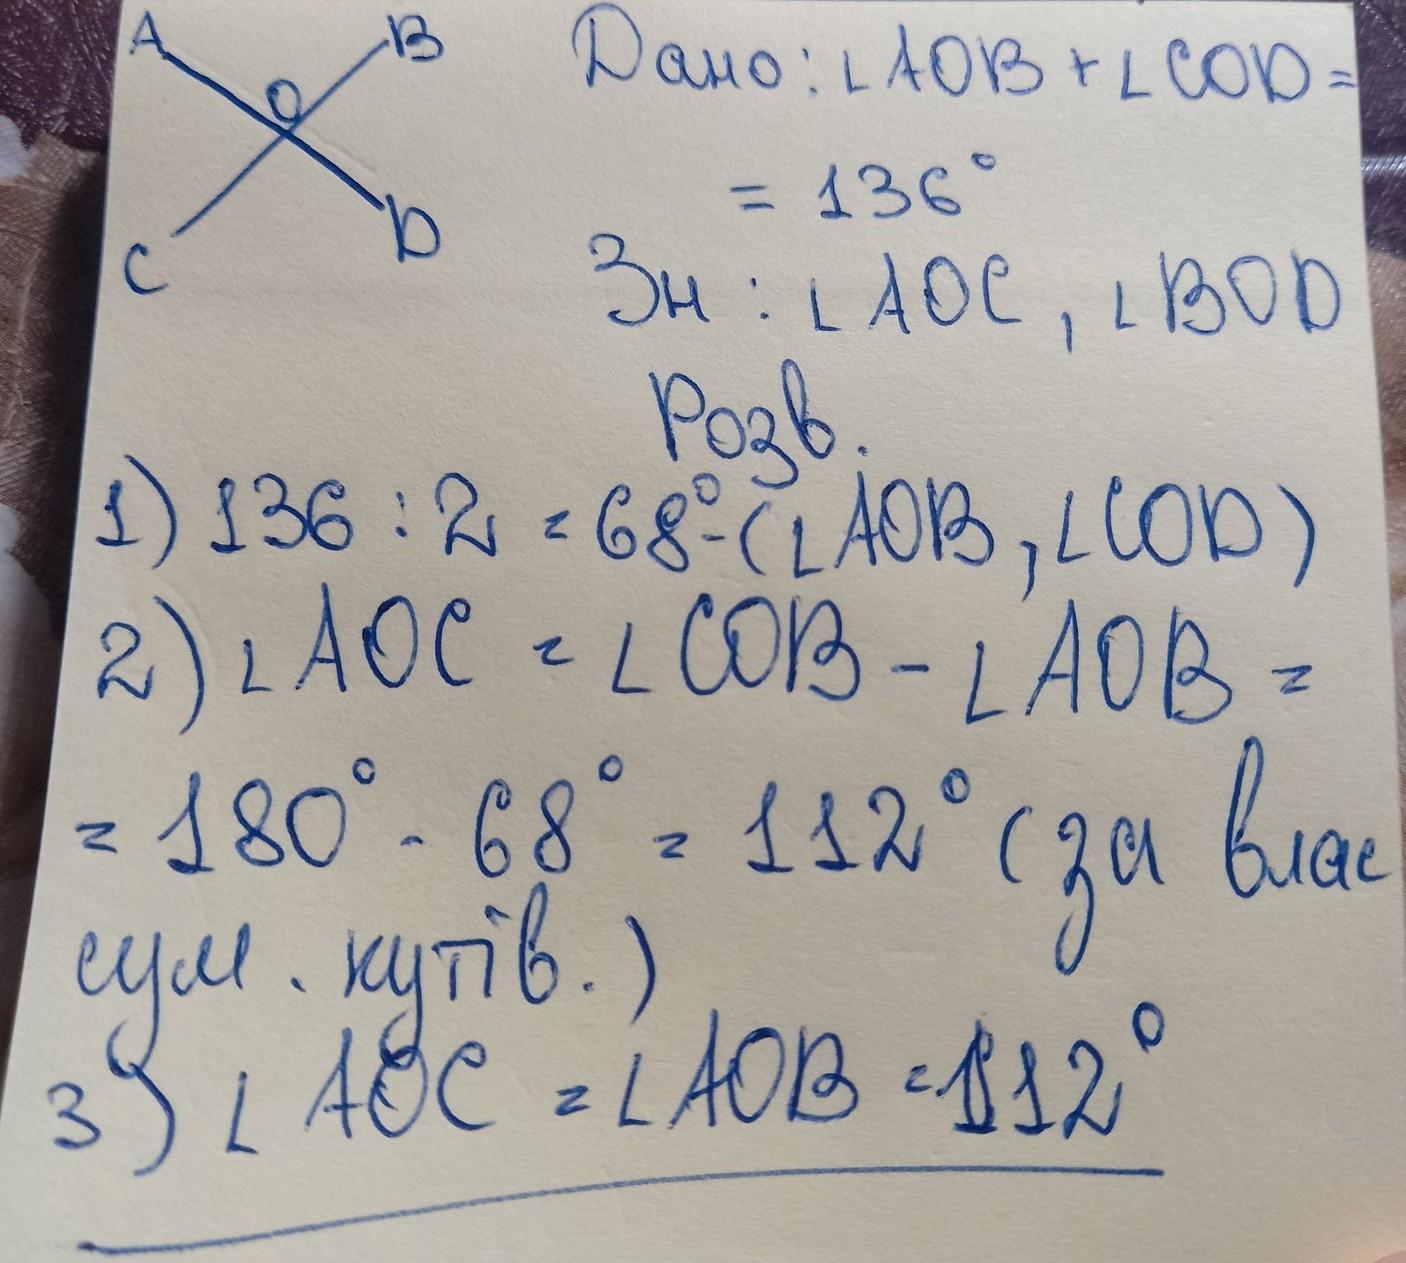 A
B
O
C
D
Дано: ∠AOB + ∠COD =
= 136°
Зн : ∠AOC, ∠BOD
Розв.
1) 136 : 2 = 68° - (∠AOB, ∠COD)
2) ∠AOC = ∠COB - ∠AOB =
= 180° - 68° = 112° (за влас
сум. кутів.)
3) ∠AOC = ∠AOB = 112°